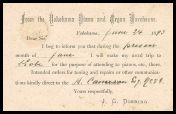 From the Yokohama Piano and Organ Warehouse.
Yokohama, June 24 1893
Dear Sir,
I beg to inform you that during the present
month of June I will make my next trip to
Kobe for the purpose of attending to pianos, etc., there.
Intended orders for tuning and repairs or other communica-
tions kindly direct to the A. Cameron Esq
Yours respectfully,
J. G. DOERING